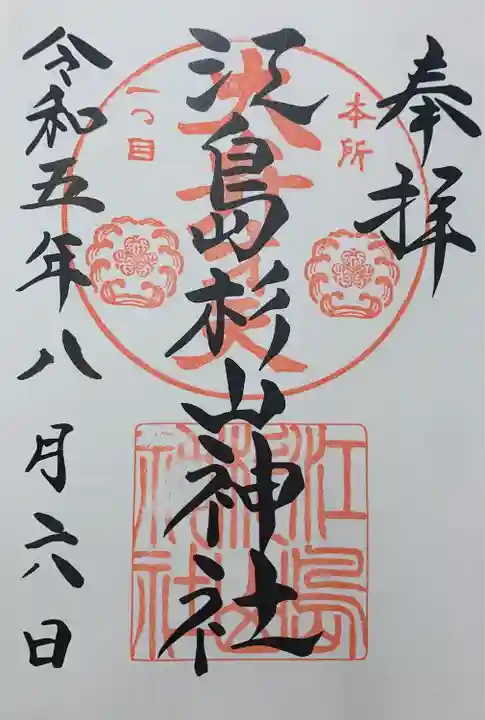 奉拝
本所
一つ目
江島杉山神社
江島杉山神社
令和五年八月六日